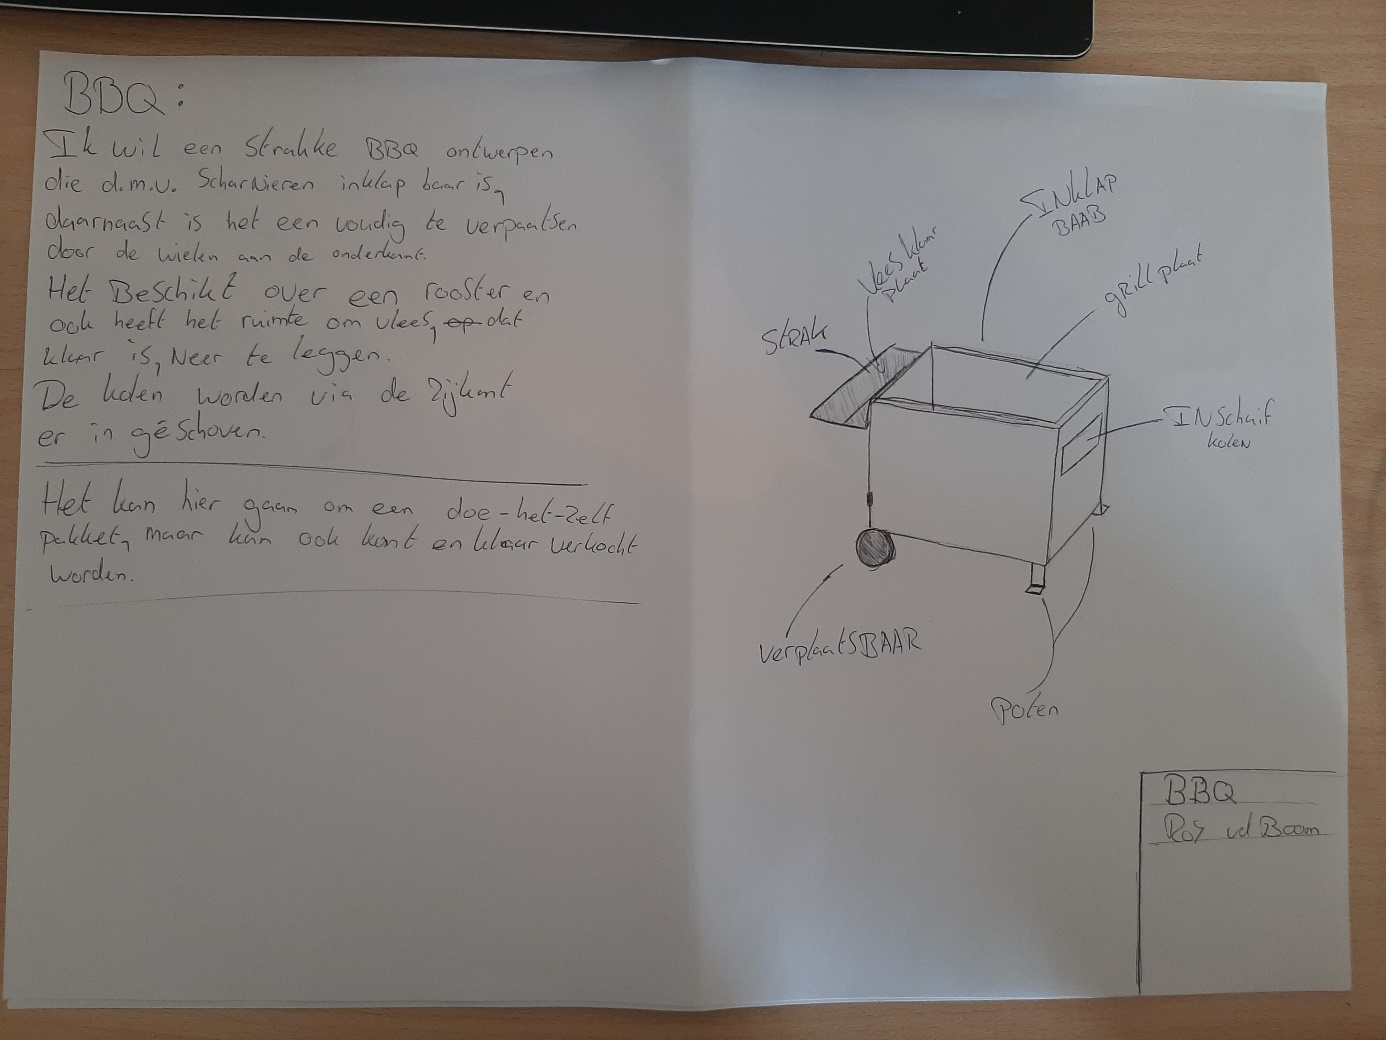 BBQ:
Ik wil een Strakke BBQ ontwerpen
die d.m.v. Scharnieren inklap baar is,
daarnaast is het een voudig te verpaatsen
door de wielen aan de onderkant.
Het Beschikt over een rooster en
ook heeft het ruimte om vlees, op dat
klaar is, Neer te leggen.
De kolen worden via de Zijkant
er in geschoven.
Het kan hier gaan om een doe-het-zelf
pakket, maar kan ook kant en klaar verkocht
worden.
INKLAP
BAAB
Vlees klaar
plaat
grill plaat
STRAK
INSchuif
kolen
verplaatSBAAR
poten
BBQ
Roy vd Boom